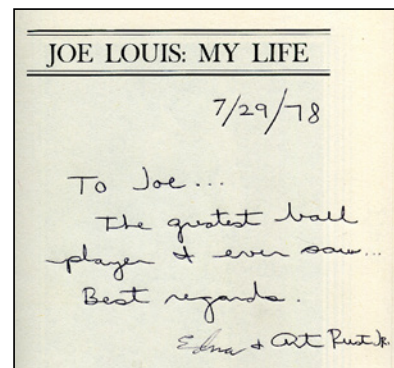 JOE LOUIS: MY LIFE
7/29/78
To Joe...
The greatest ball
player I ever saw...
Best regards.
Edna & Art Rust Jr.